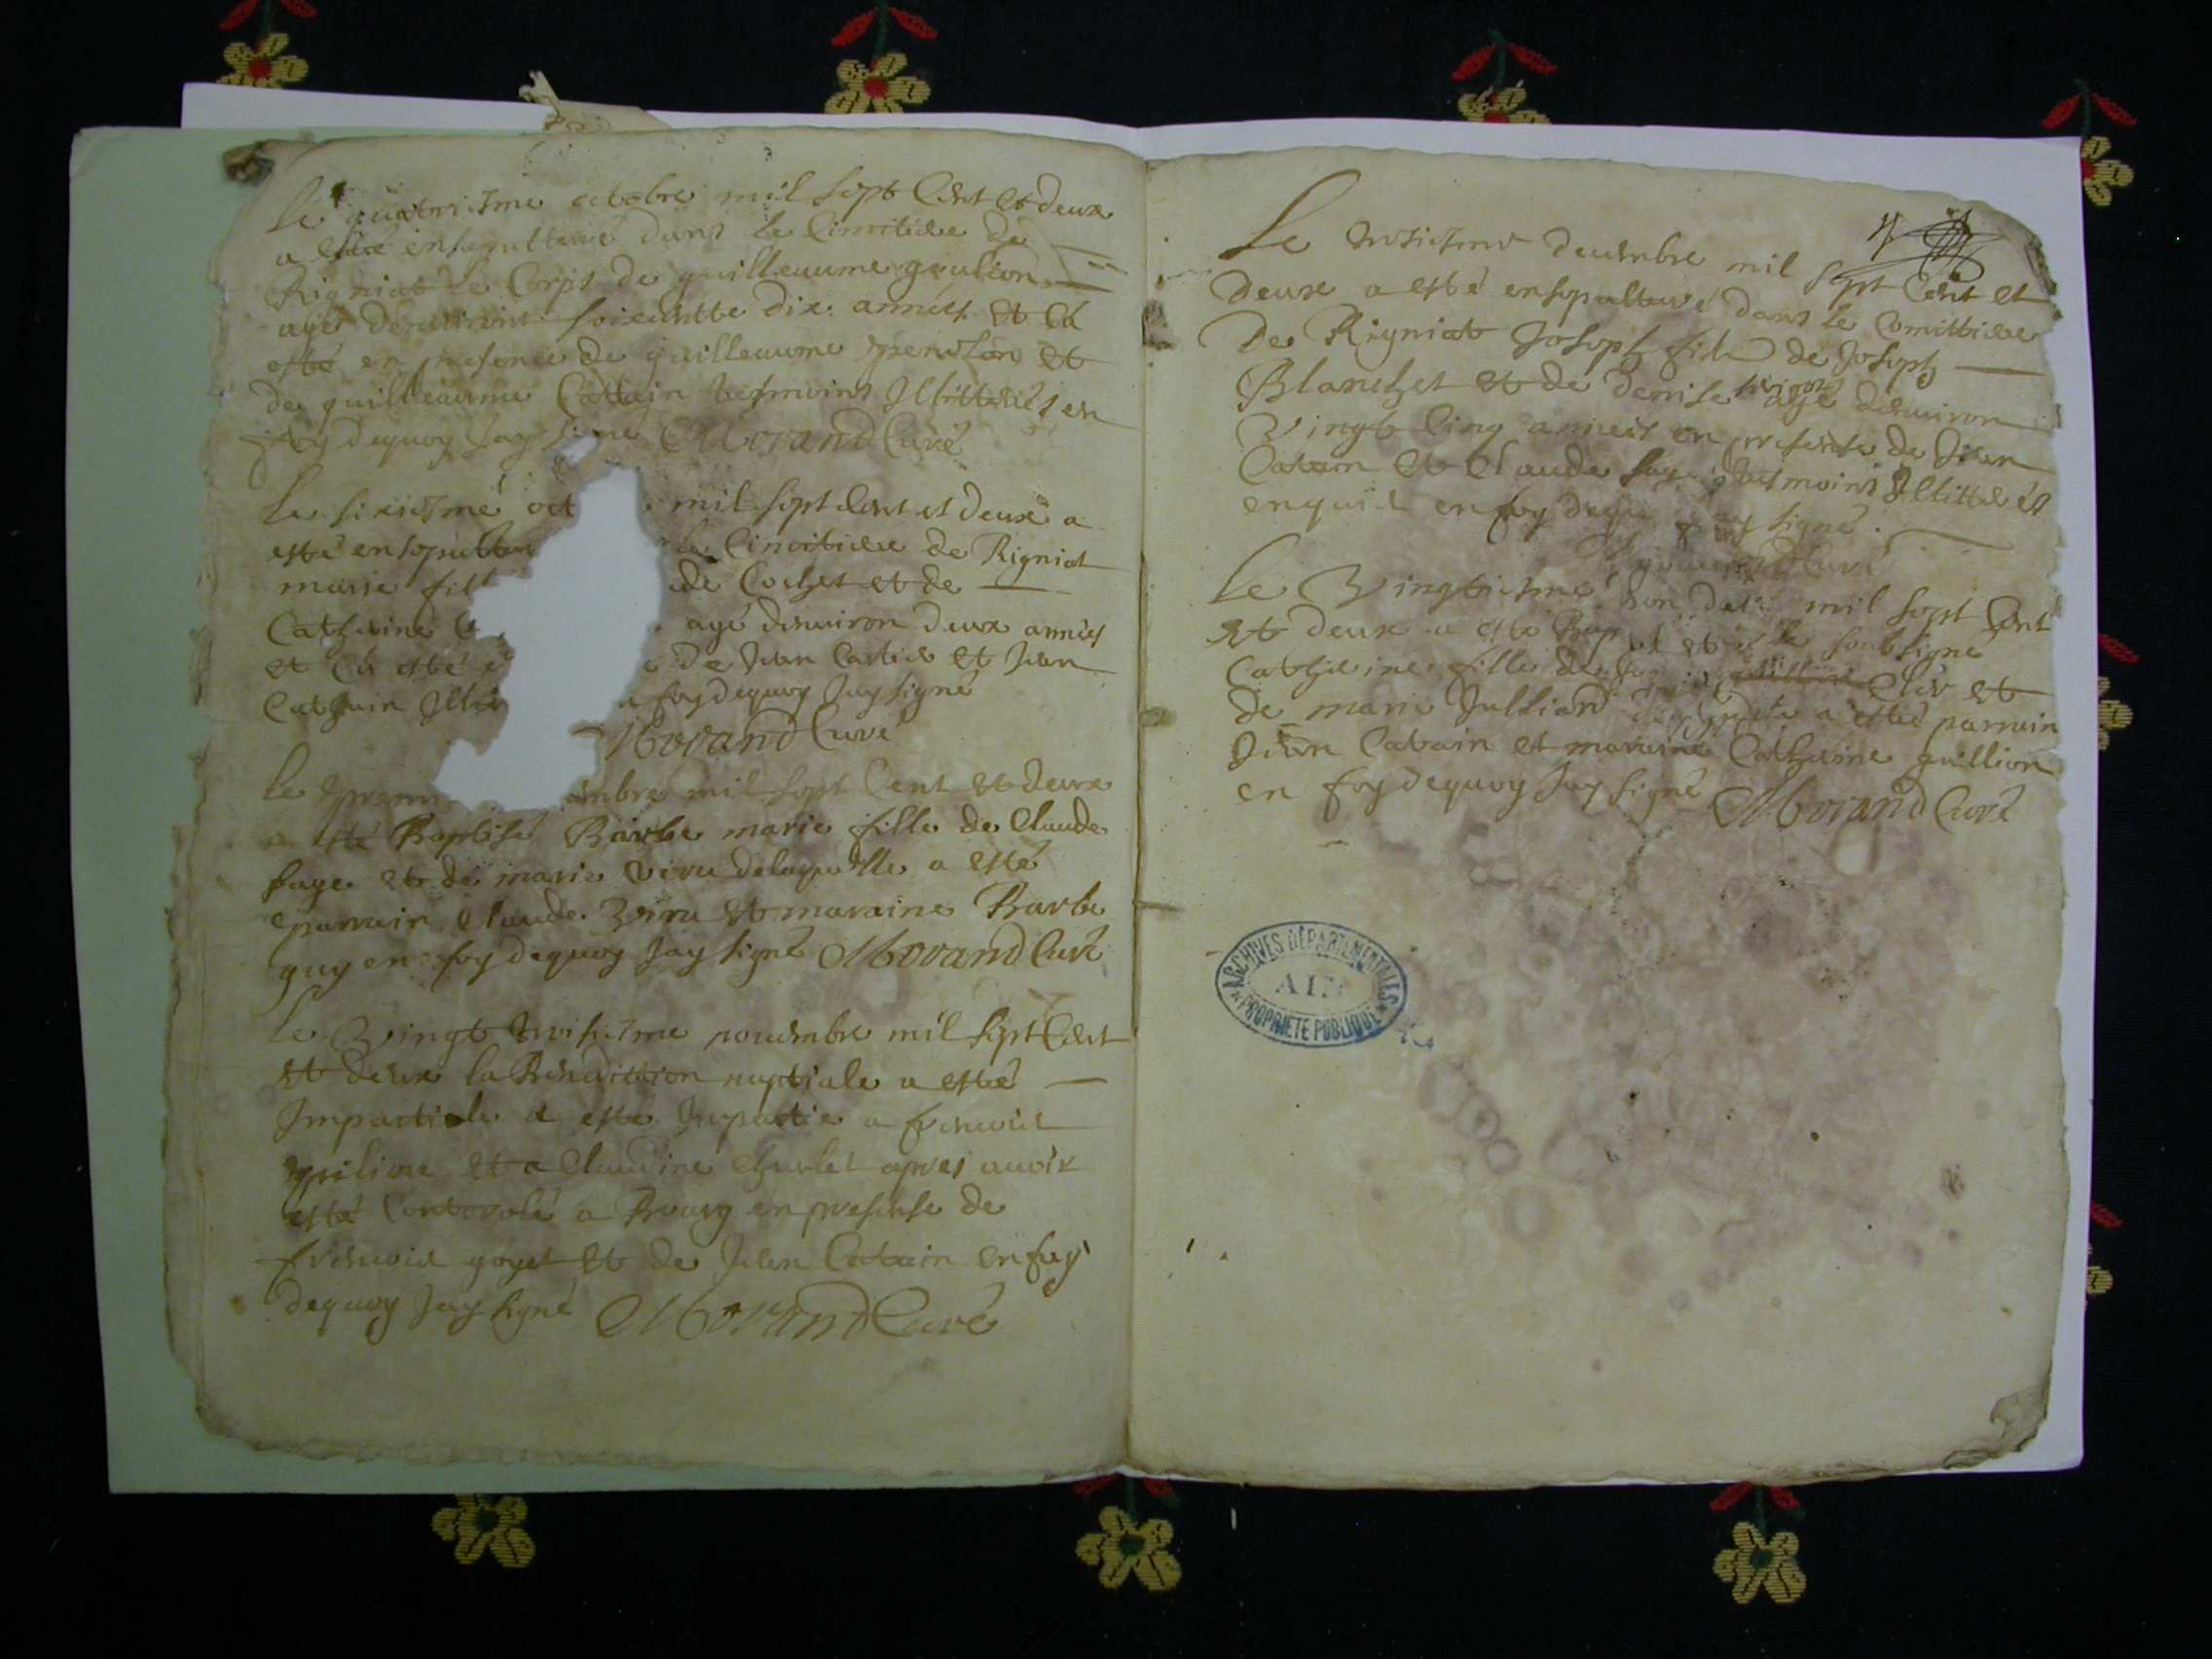 Le quatriesme octobre mil sept Cent et deux
a esté ensepulturé dans le Cimitiere de
Rigniat le Corps de guilleaume
agé denviron soixantte dix années et Ca
esté en presence de guilleaume et
de guilleaume Cattain tesmoins Illitterés en
foy dequoy Jay signé Morand Curé
Le sixiesme oct mil sept Cent et deux a
esté ensepultu le Cimitiere de Rigniat
marie fill de Cochet et de
Catherine agé denviron deux années
et Ca esté de Jean et Jean
Cathain foy dequoy Jay signé
Morand Curé
Le prem mbre mil sept Cent et deux
a esté Baptisé Barbe marie fille de Claude
faye et de marie delaquelle a esté
parrain Claude et maraine Barbe
guy en foy dequoy Jay signé Morand Curé
Le Vingt troisiesme novembre mil sept Cent
et deux la Benediction nuptiale a esté
Impartiale a esté Impartie a francois
et a Claudine Charlet apres avoir
esté Controolé a Bourg en presense de
francois goyet et de Jean Catain en foy
dequoy Jay signé Morand Curé
Le troisiesme decembre mil sept Cent et
deux a esté ensepulturé dans le Comittiere
De Rigniat Joseph fils de Joseph
Blanchet et de denise agé denviron
Vingt Cinq années en presense de Jean
Catain et Claude tesmoins Illitterés
enquis en foy dequoy Jay signé.
Morand Curé
Le Vingtiesme mil sept Cent
et deux a esté Bap soubsigné
Catherine fille de et
de marie Jullian a esté parrain
Jean Catain et maraine Catherine guillion
en foy dequoy Jay signé Morand Curé
ARCHIVES DÉPARTEMENTALES
AIN
PROPRIÉTÉ PUBLIQUE